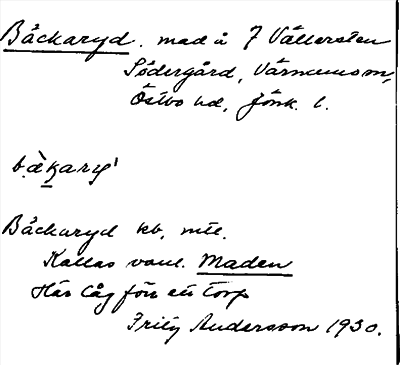 Bäckaryd. mad å 7 Vällersten
Södergård, Värnamo sn,
Östbo hd, Jönk. l.
Bäckaryd kb, mtl.
Kallas vanl. Maden
Här låg förr ett torp
Frity Andersson 1930.